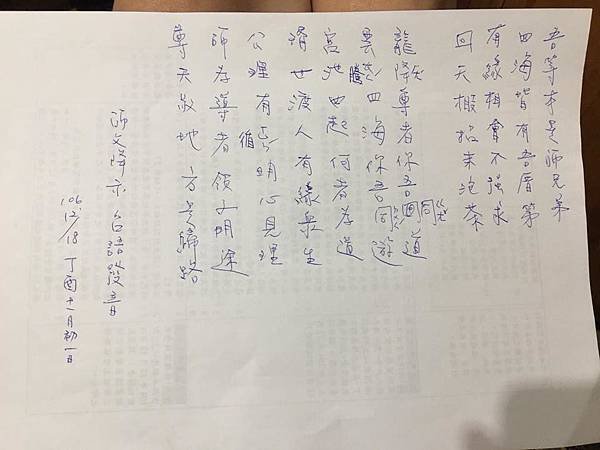 吾等本是師兄弟
四海皆有吾厝第
有緣相會不強求
回天搬招來泡茶
龍降 尊者你吾同道
雲騰四海你吾同遊
宮池四起何者為道
濟世渡人有緣眾生
公理有循明心見理
師為導者領子明途
尊天敬地方是歸路
師文降示 台語發音
106.12/18 丁酉十一月初一日